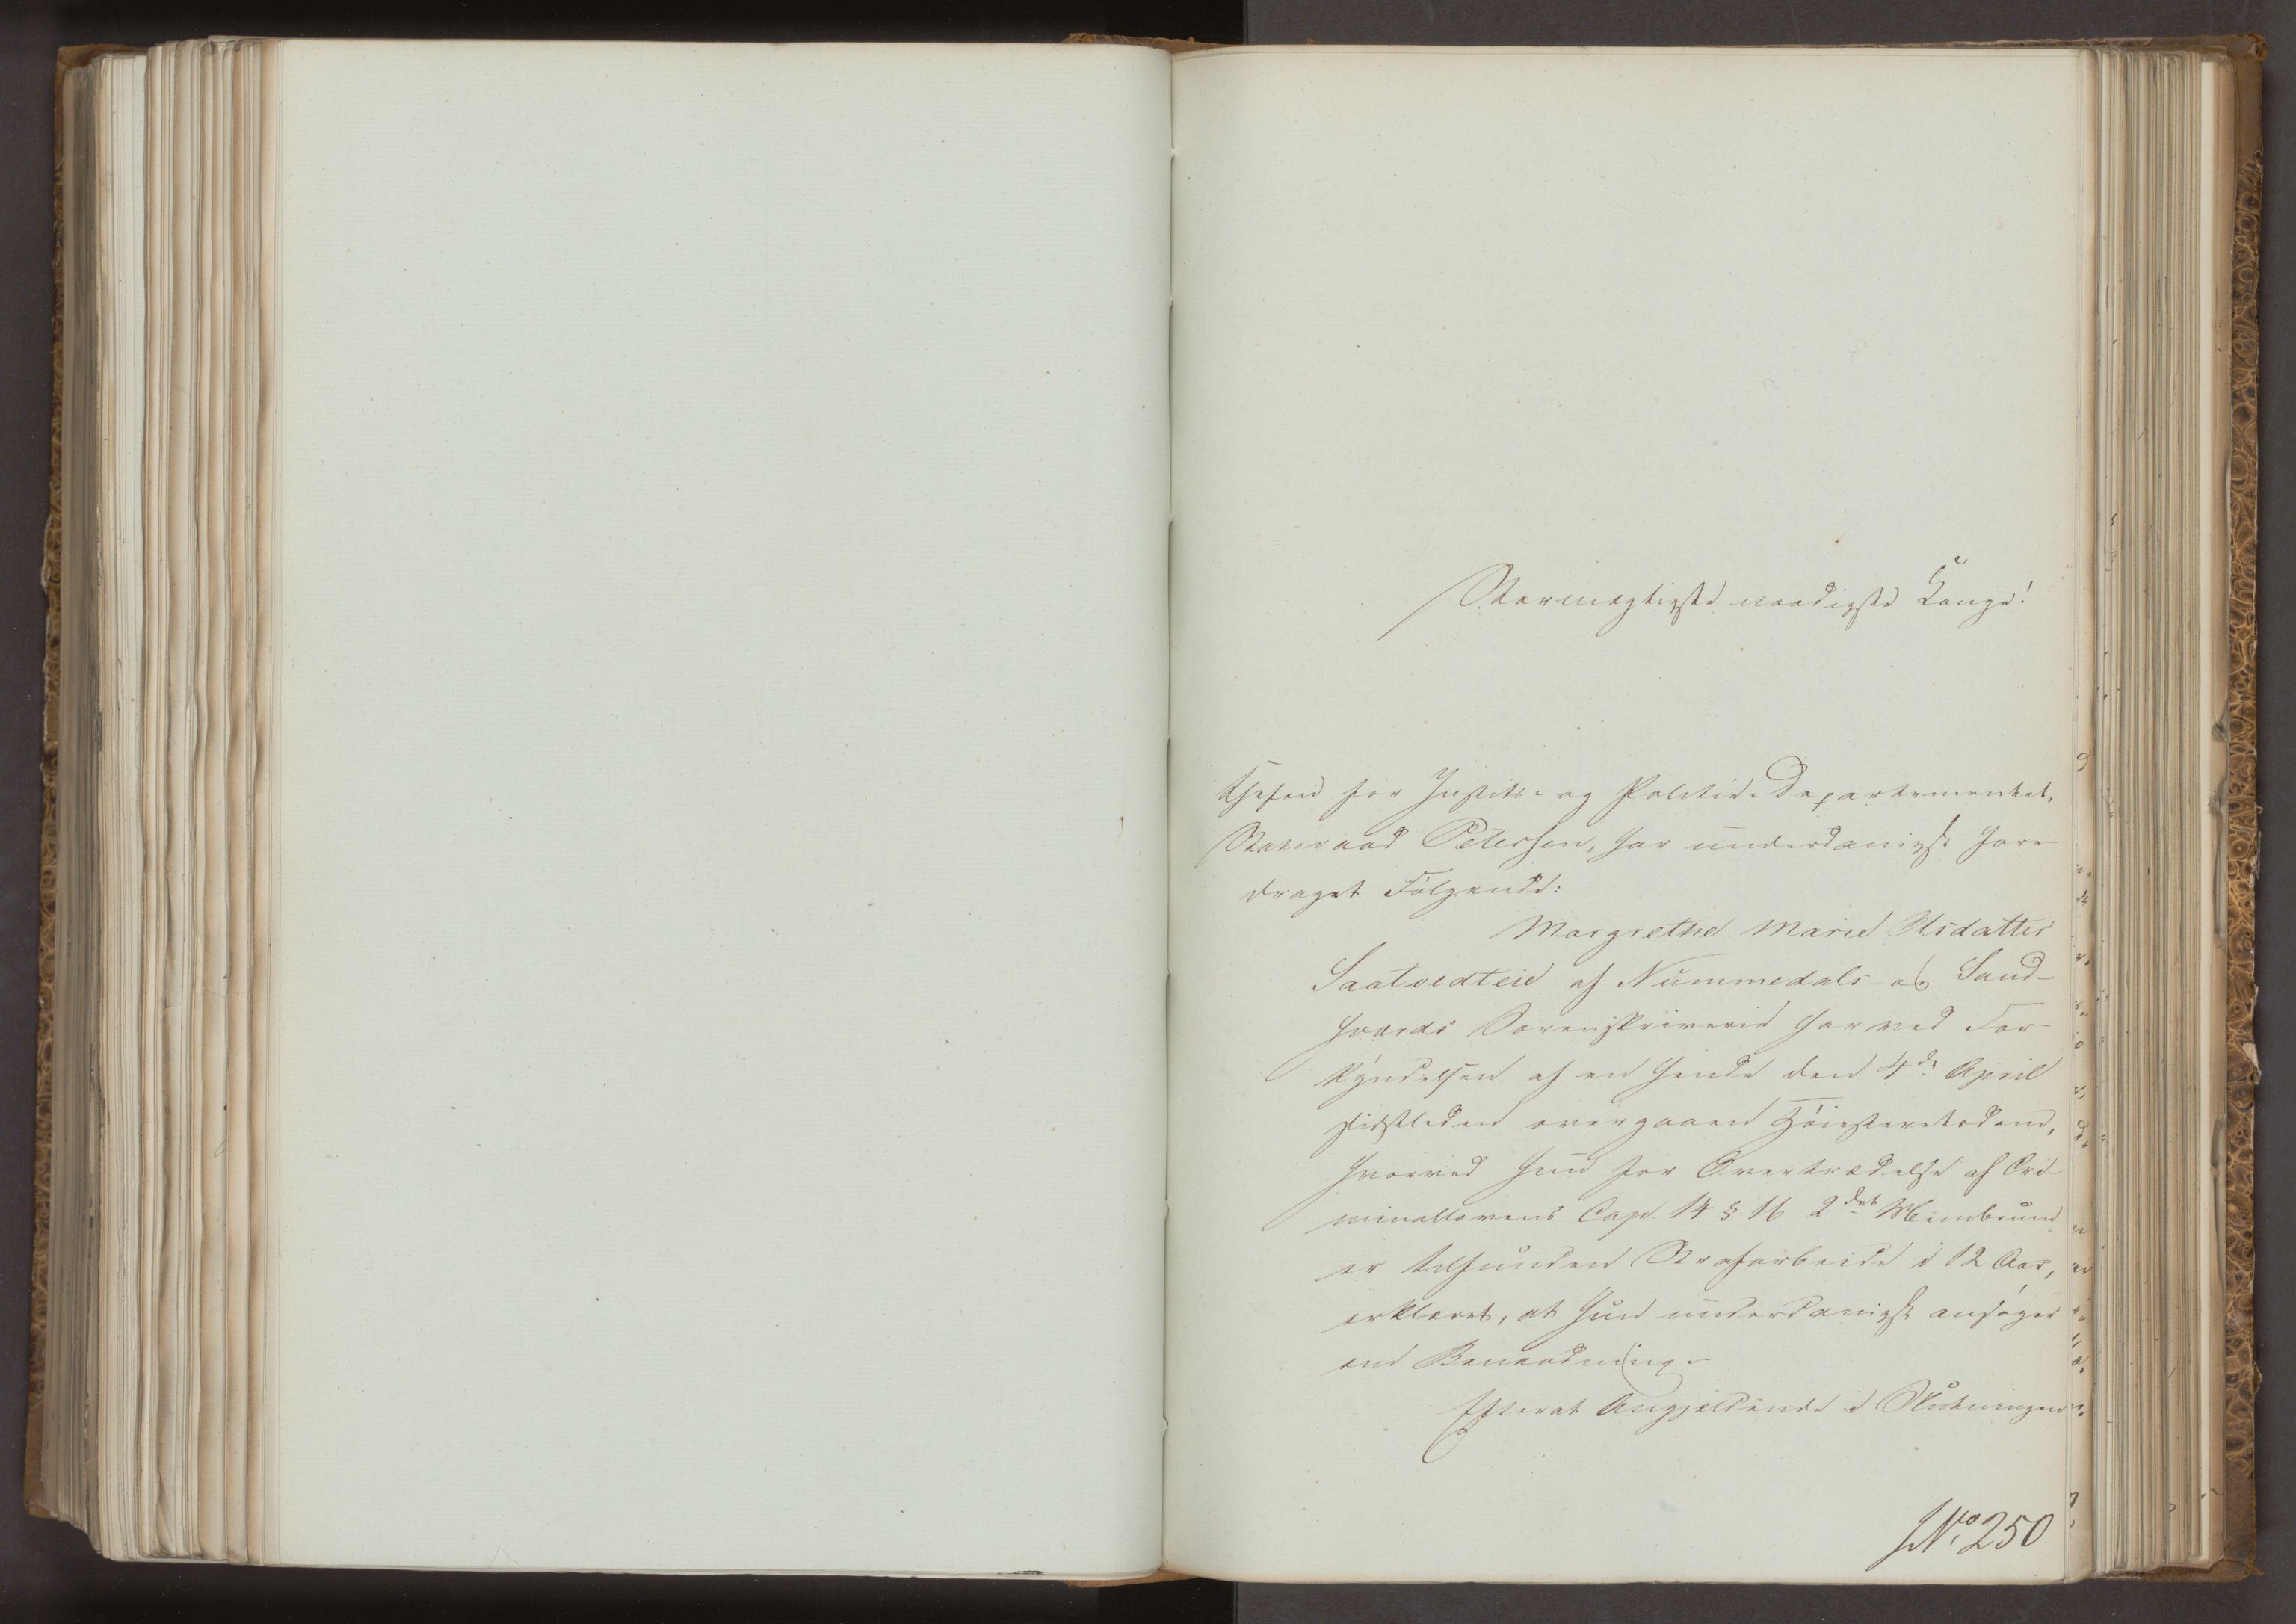 Stormægtigste naadigste Konge!
Chefen for Justits- og Politie-Departementet,
Statsraad Petersen, har underdanigst fore-
draget Følgende:
Margrethe Marie Olsdatter
Saatvedteie af Nummedals- og Sand-
sværds Sorenskriverie har ved For-
kyndelsen af en hende den 4de April
sidstleden overgaaen Høiesteretsdom,
hvorved hun for Overtrædelse af Cri-
minallovens Cap. 14 § 16 2det Membrum
er tilfunden Strafarbeide i 12 Aar,
erklæret, at hun underdanigst ansøger
om Benaadning.
Efterat Angjeldende i Slutningen
No. 250